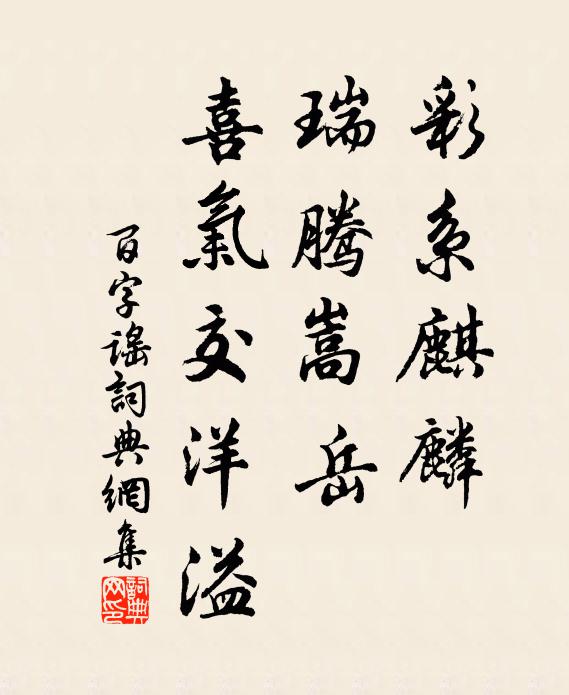 彩系麒麟
瑞騰嵩岳
喜氣交洋溢
百字謠詞典網集
詞典
网印